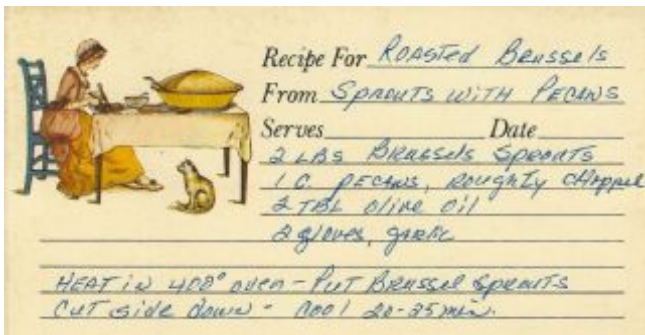 Recipe For Roasted Brussels
From Sprouts with Pecans
Serves Date
2 LBS Brussels Sprouts
1 C. pecans, roughly chopped
2 TBL olive oil
2 gloves, garlic
Heat in 400° oven - Put Brussel sprouts
cut side down - 20-25 min.